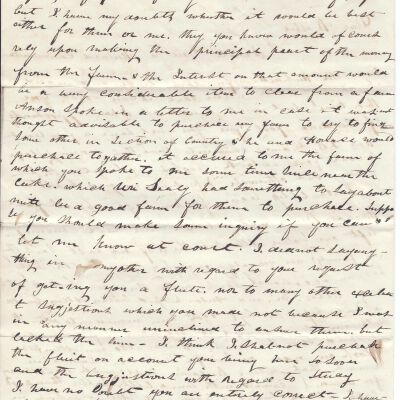 but I have my doubts whether it would be best
either for them or me, they you know would of course
rely upon making the principal part of the money
from the farm & the Interest on that amount would
be a very considerable item to clear from a farm
Anson spoke in a letter to me in case it was not
thought advisable to purchase my farm to try to find
some other in Section of Country & he and would
purchase together. it occured to me the farm of
which you spoke to me some time since near the
Lake. which Wm had something to say about
might be a good farm for them to purchase. Suppose
you should make some inquiry if you can &
let me know at court. I did not say any-
thing in with regard to your request
of getting you a flute. nor to many other
suggestions which you made not because I was
in any manner uninclined to answer them. but
lacked the time - I think I shall not purchase
the flute on account you being here so soon
and the suggestions with regard to Study
I have no doubt you are entirely correct. I have